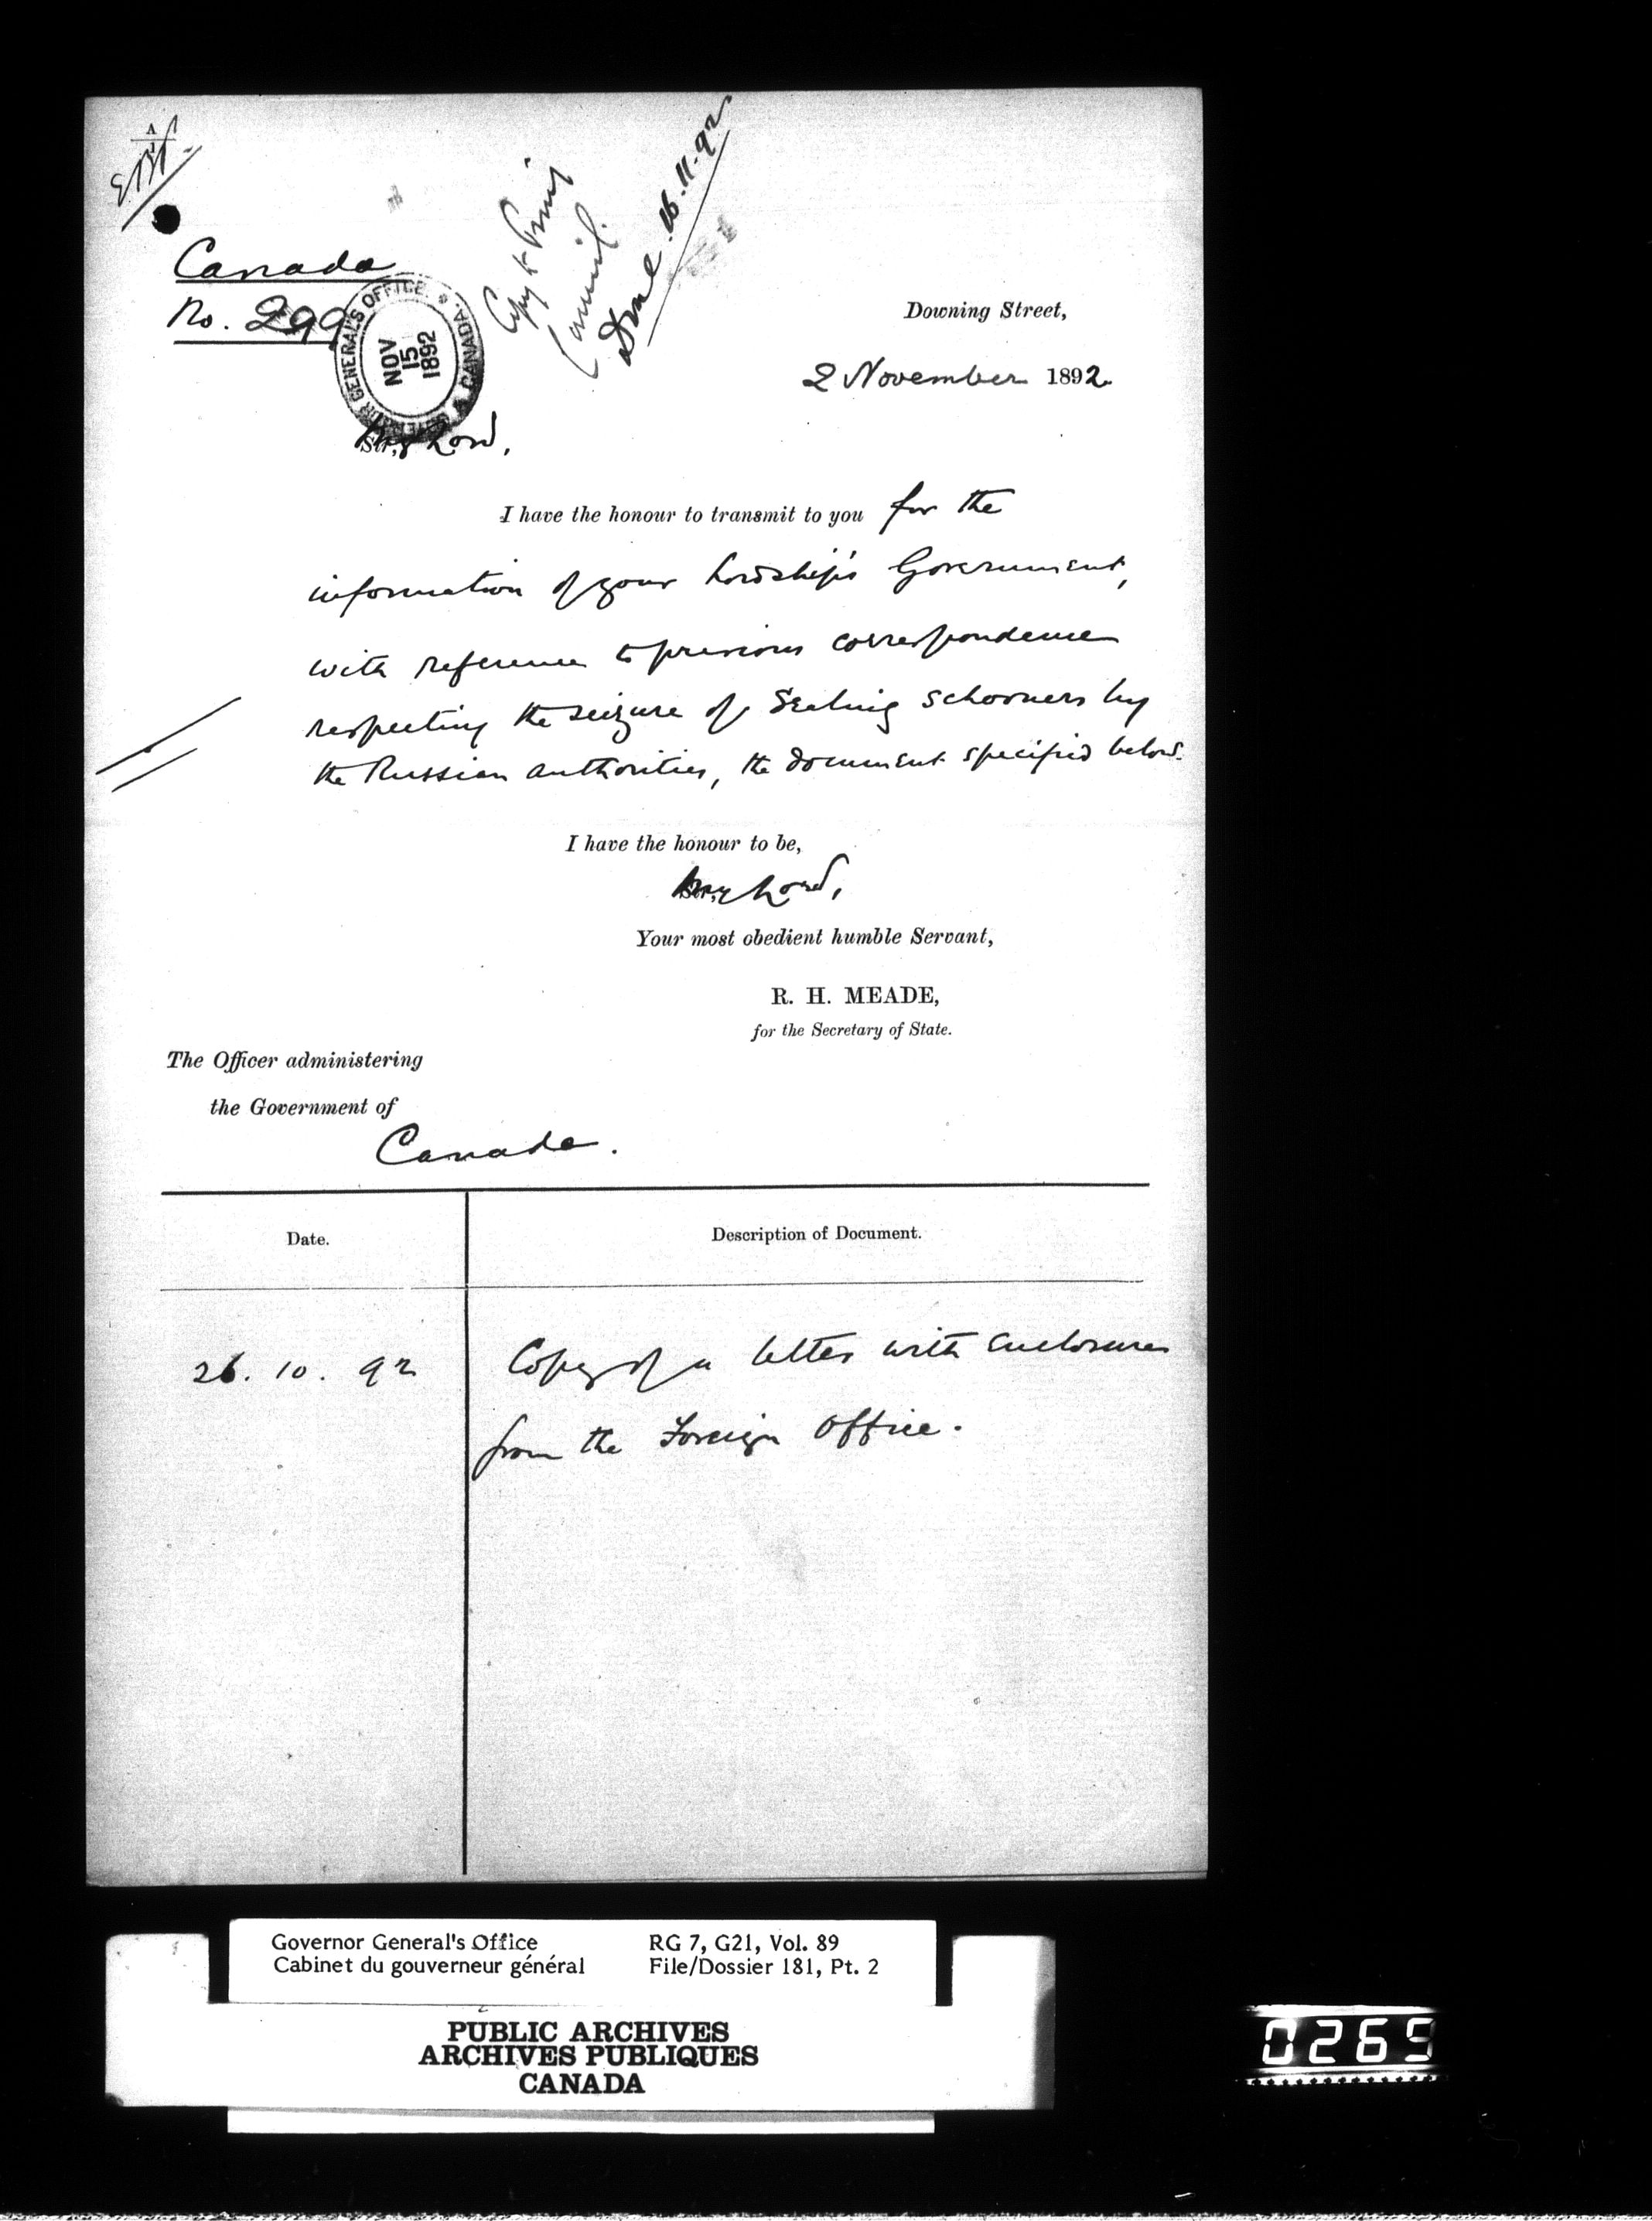 Canada
No. 299
GOVERNOR GENERAL'S OFFICE. CANADA.
NOV
15
1892
Copy to Privy
Council.
Done. 16.11.92
Downing Street,
2 November 1892.
My Lord,
I have the honour to transmit to you for the
information of your Lordship's Government,
with reference to previous correspondence
respecting the seizure of Sealing Schooners by
the Russian authorities, the document specified below.
I have the honour to be,
My Lord,
Your most obedient humble Servant,
R. H. MEADE,
for the Secretary of State.
The Officer administering
the Government of
Canada.
Date.
Description of Document.
26. 10. 92
Copy of a letter with enclosures
from the Foreign Office.
Governor General's Office
Cabinet du gouverneur général
RG 7, G21, Vol. 89
File/Dossier 181, Pt. 2
PUBLIC ARCHIVES
ARCHIVES PUBLIQUES
CANADA
0265